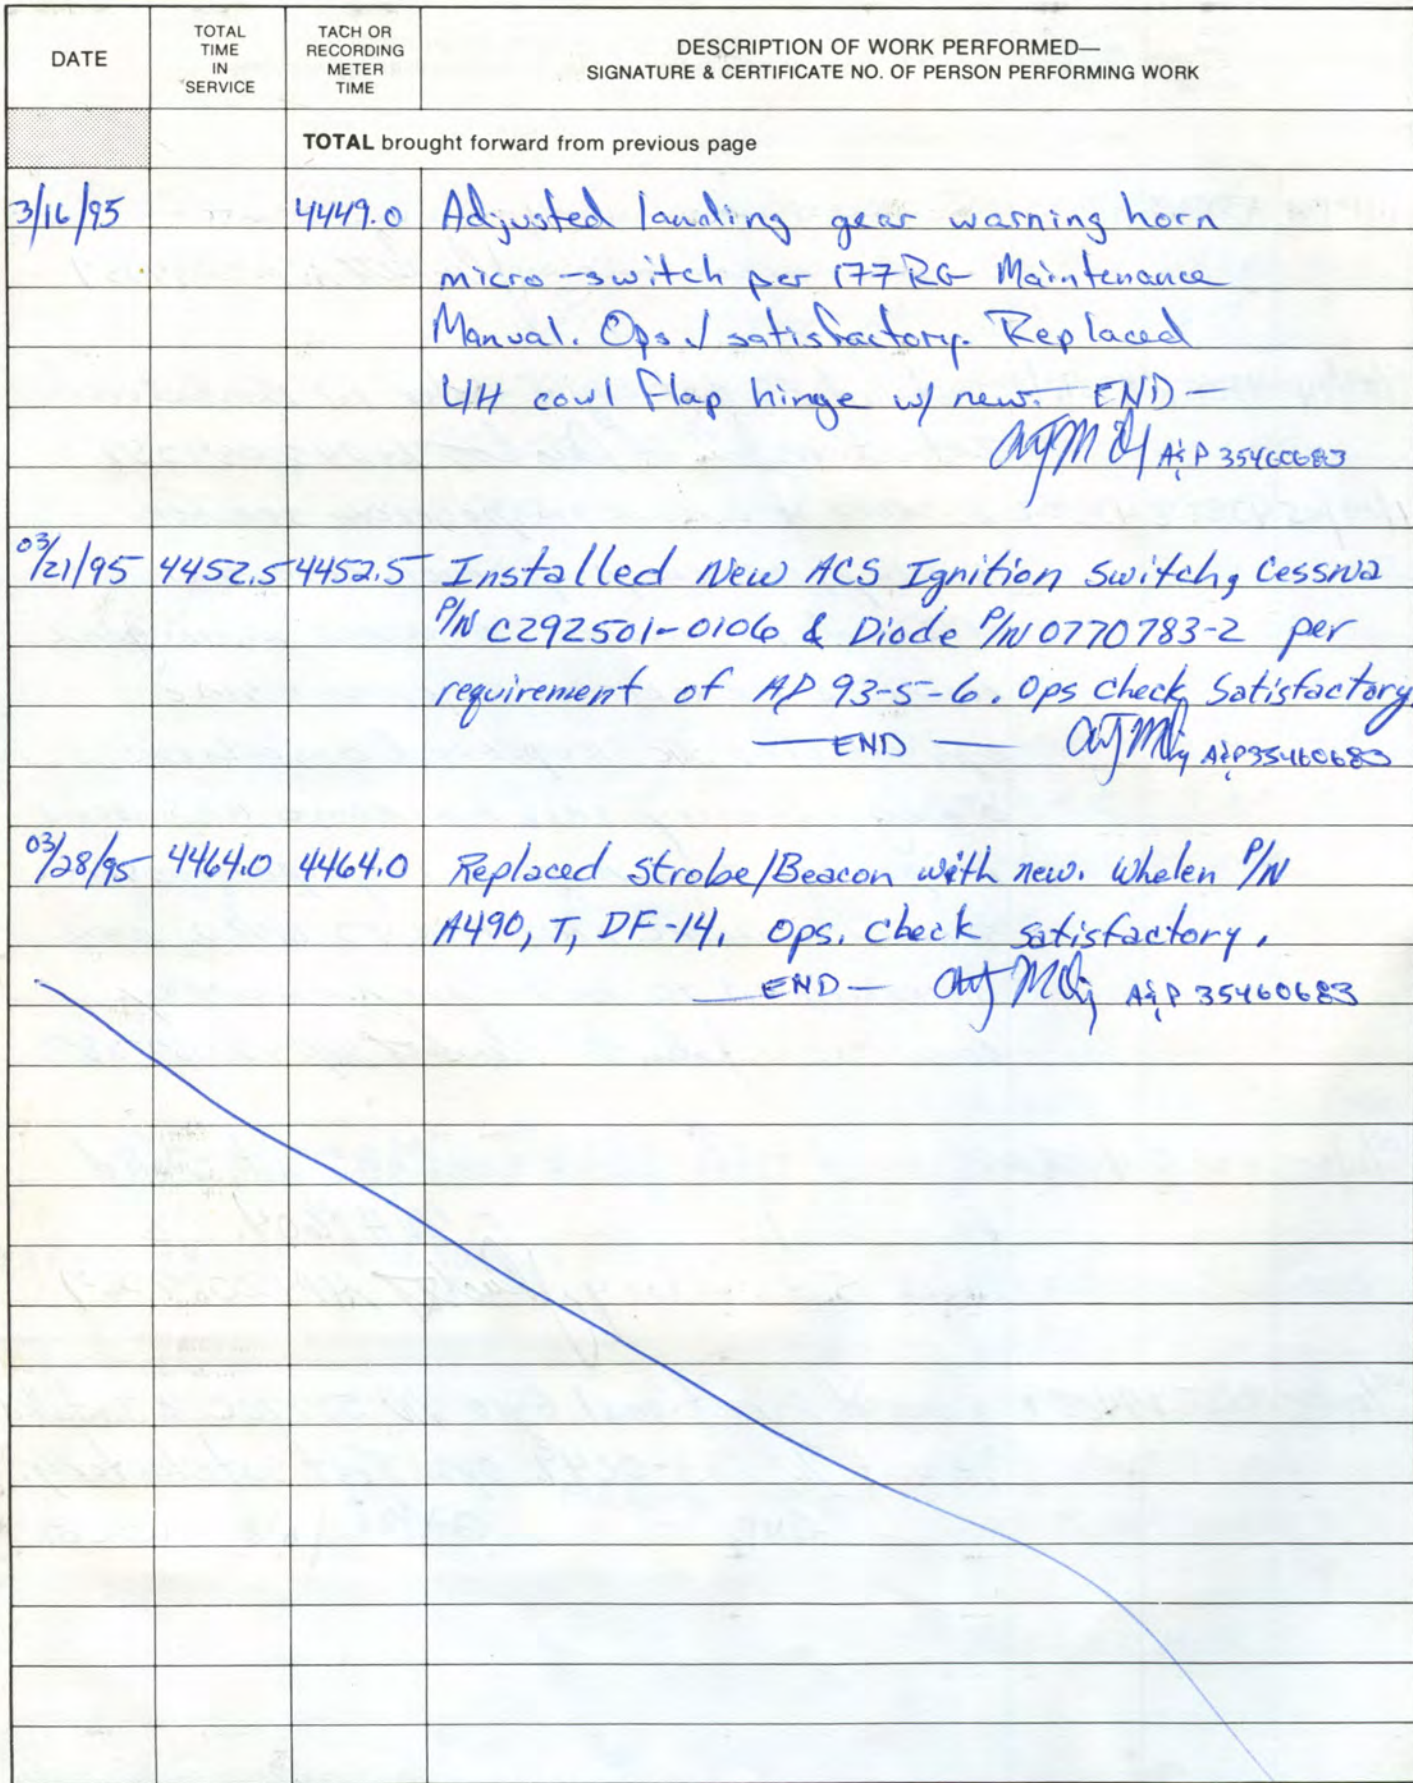 DATE
TOTAL
TIME
IN
SERVICE
TACH OR
RECORDING
METER
TIME
DESCRIPTION OF WORK PERFORMED—
SIGNATURE & CERTIFICATE NO. OF PERSON PERFORMING WORK
TOTAL brought forward from previous page
3/16/95 4449.0 Adjusted landing gear warning horn
micro-switch per 177RG Maintenance
Manual. Ops ✓ satisfactory. Replaced
L/H cowl flap hinge w/ new. — END —
A&P 35460683
03/21/95 4452.5 4452.5 Installed New ACS Ignition Switch, Cessna
P/N C292501-0106 & Diode P/N 0770783-2 per
requirement of AD 93-5-6. Ops check Satisfactory.
— END — A&P 35460683
03/28/95 4464.0 4464.0 Replaced Strobe/Beacon with new. Whelen P/N
A490, T, DF-14. Ops. check satisfactory.
— END — A&P 35460683